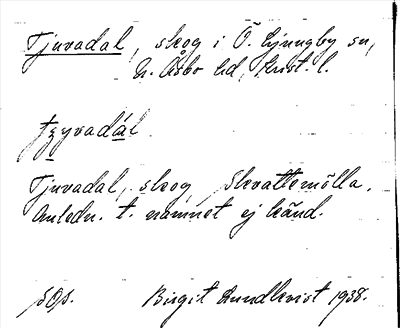 Tjuvadal, skog i Ö. Ljungby sn,
N. Åsbo hd, Krist. l.
tzyvadál
Tjuvadal, skog, Skvattemölla.
Anledn. t. namnet ej känd.
Birgit Rundkvist 1938.